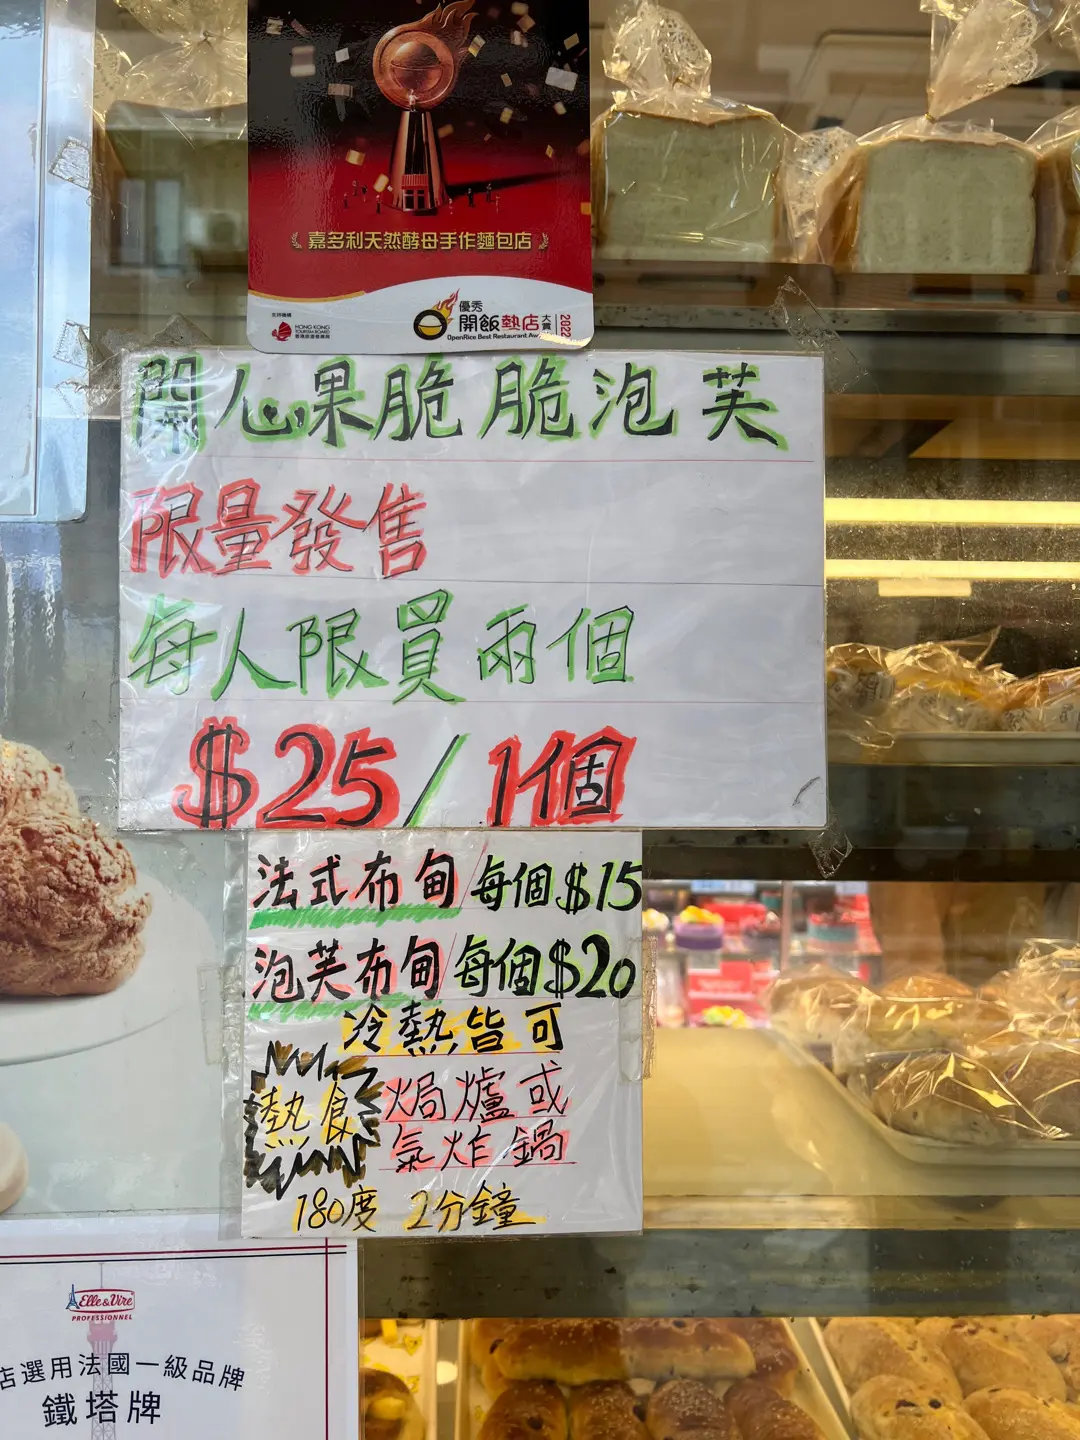 嘉多利天然酵母手作麵包店
支持機構
HONG KONG
TOURISM BOARD
優秀
開飯熱店
大賞
2022
OpenRice Best Restaurant Awa
開心果脆脆泡芙
限量發售
每人限買兩個
$25/1個
法式布甸/每個$15
泡芙布甸/每個$20
冷熱皆可
熱食
焗爐或
氣炸鍋
180度 2分鐘
Elle&Vire
PROFESSIONNEL
店選用法國一級品牌
鐵塔牌